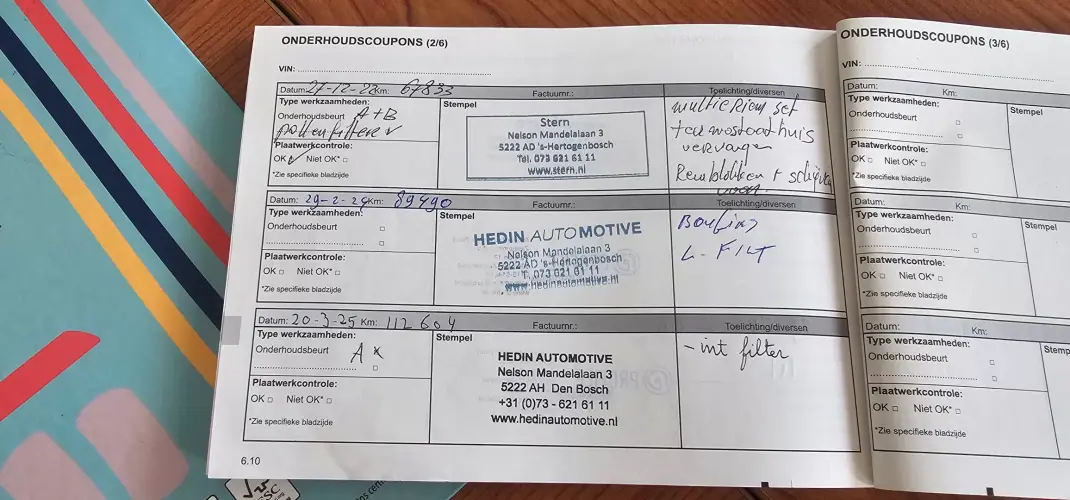 ONDERHOUDSCOUPONS (2/6)
VIN:
Datum: 27-12-22 Km: 67833 Factuurnr.: Toelichting/diversen
Type werkzaamheden:
Onderhoudsbeurt A+B
pollenfilter
Plaatwerkcontrole:
OK Niet OK*
*Zie specifieke bladzijde
Stempel
Stern
Nelson Mandelalaan 3
5222 AD 's-Hertogenbosch
Tel. 073 621 61 11
www.stern.nl
multieriem set
termostaathuis
vervangen
Remblokken + schijven
voor.
Datum: 29-2-24 Km: 89490 Factuurnr.: Toelichting/diversen
Type werkzaamheden:
Onderhoudsbeurt
Plaatwerkcontrole:
OK Niet OK*
*Zie specifieke bladzijde
Stempel
HEDIN AUTOMOTIVE
Nelson Mandelalaan 3
5222 AD 's-Hertogenbosch
T. 073 621 61 11
www.hedinautomotive.nl
L. FILT
Datum: 20-3-25 Km: 112604 Factuurnr.: Toelichting/diversen
Type werkzaamheden:
Onderhoudsbeurt A x
Plaatwerkcontrole:
OK Niet OK*
*Zie specifieke bladzijde
Stempel
HEDIN AUTOMOTIVE
Nelson Mandelalaan 3
5222 AH Den Bosch
+31 (0)73 - 621 61 11
www.hedinautomotive.nl
- int filter
6.10
ONDERHOUDSCOUPONS (3/6)
VIN:
Datum: Km:
Type werkzaamheden:
Onderhoudsbeurt
Plaatwerkcontrole:
OK Niet OK*
*Zie specifieke bladzijde
Stempel
Datum: Km:
Type werkzaamheden:
Onderhoudsbeurt
Plaatwerkcontrole:
OK Niet OK*
*Zie specifieke bladzijde
Stempel
Datum: Km:
Type werkzaamheden:
Onderhoudsbeurt
Plaatwerkcontrole:
OK Niet OK*
*Zie specifieke bladzijde
Stemp